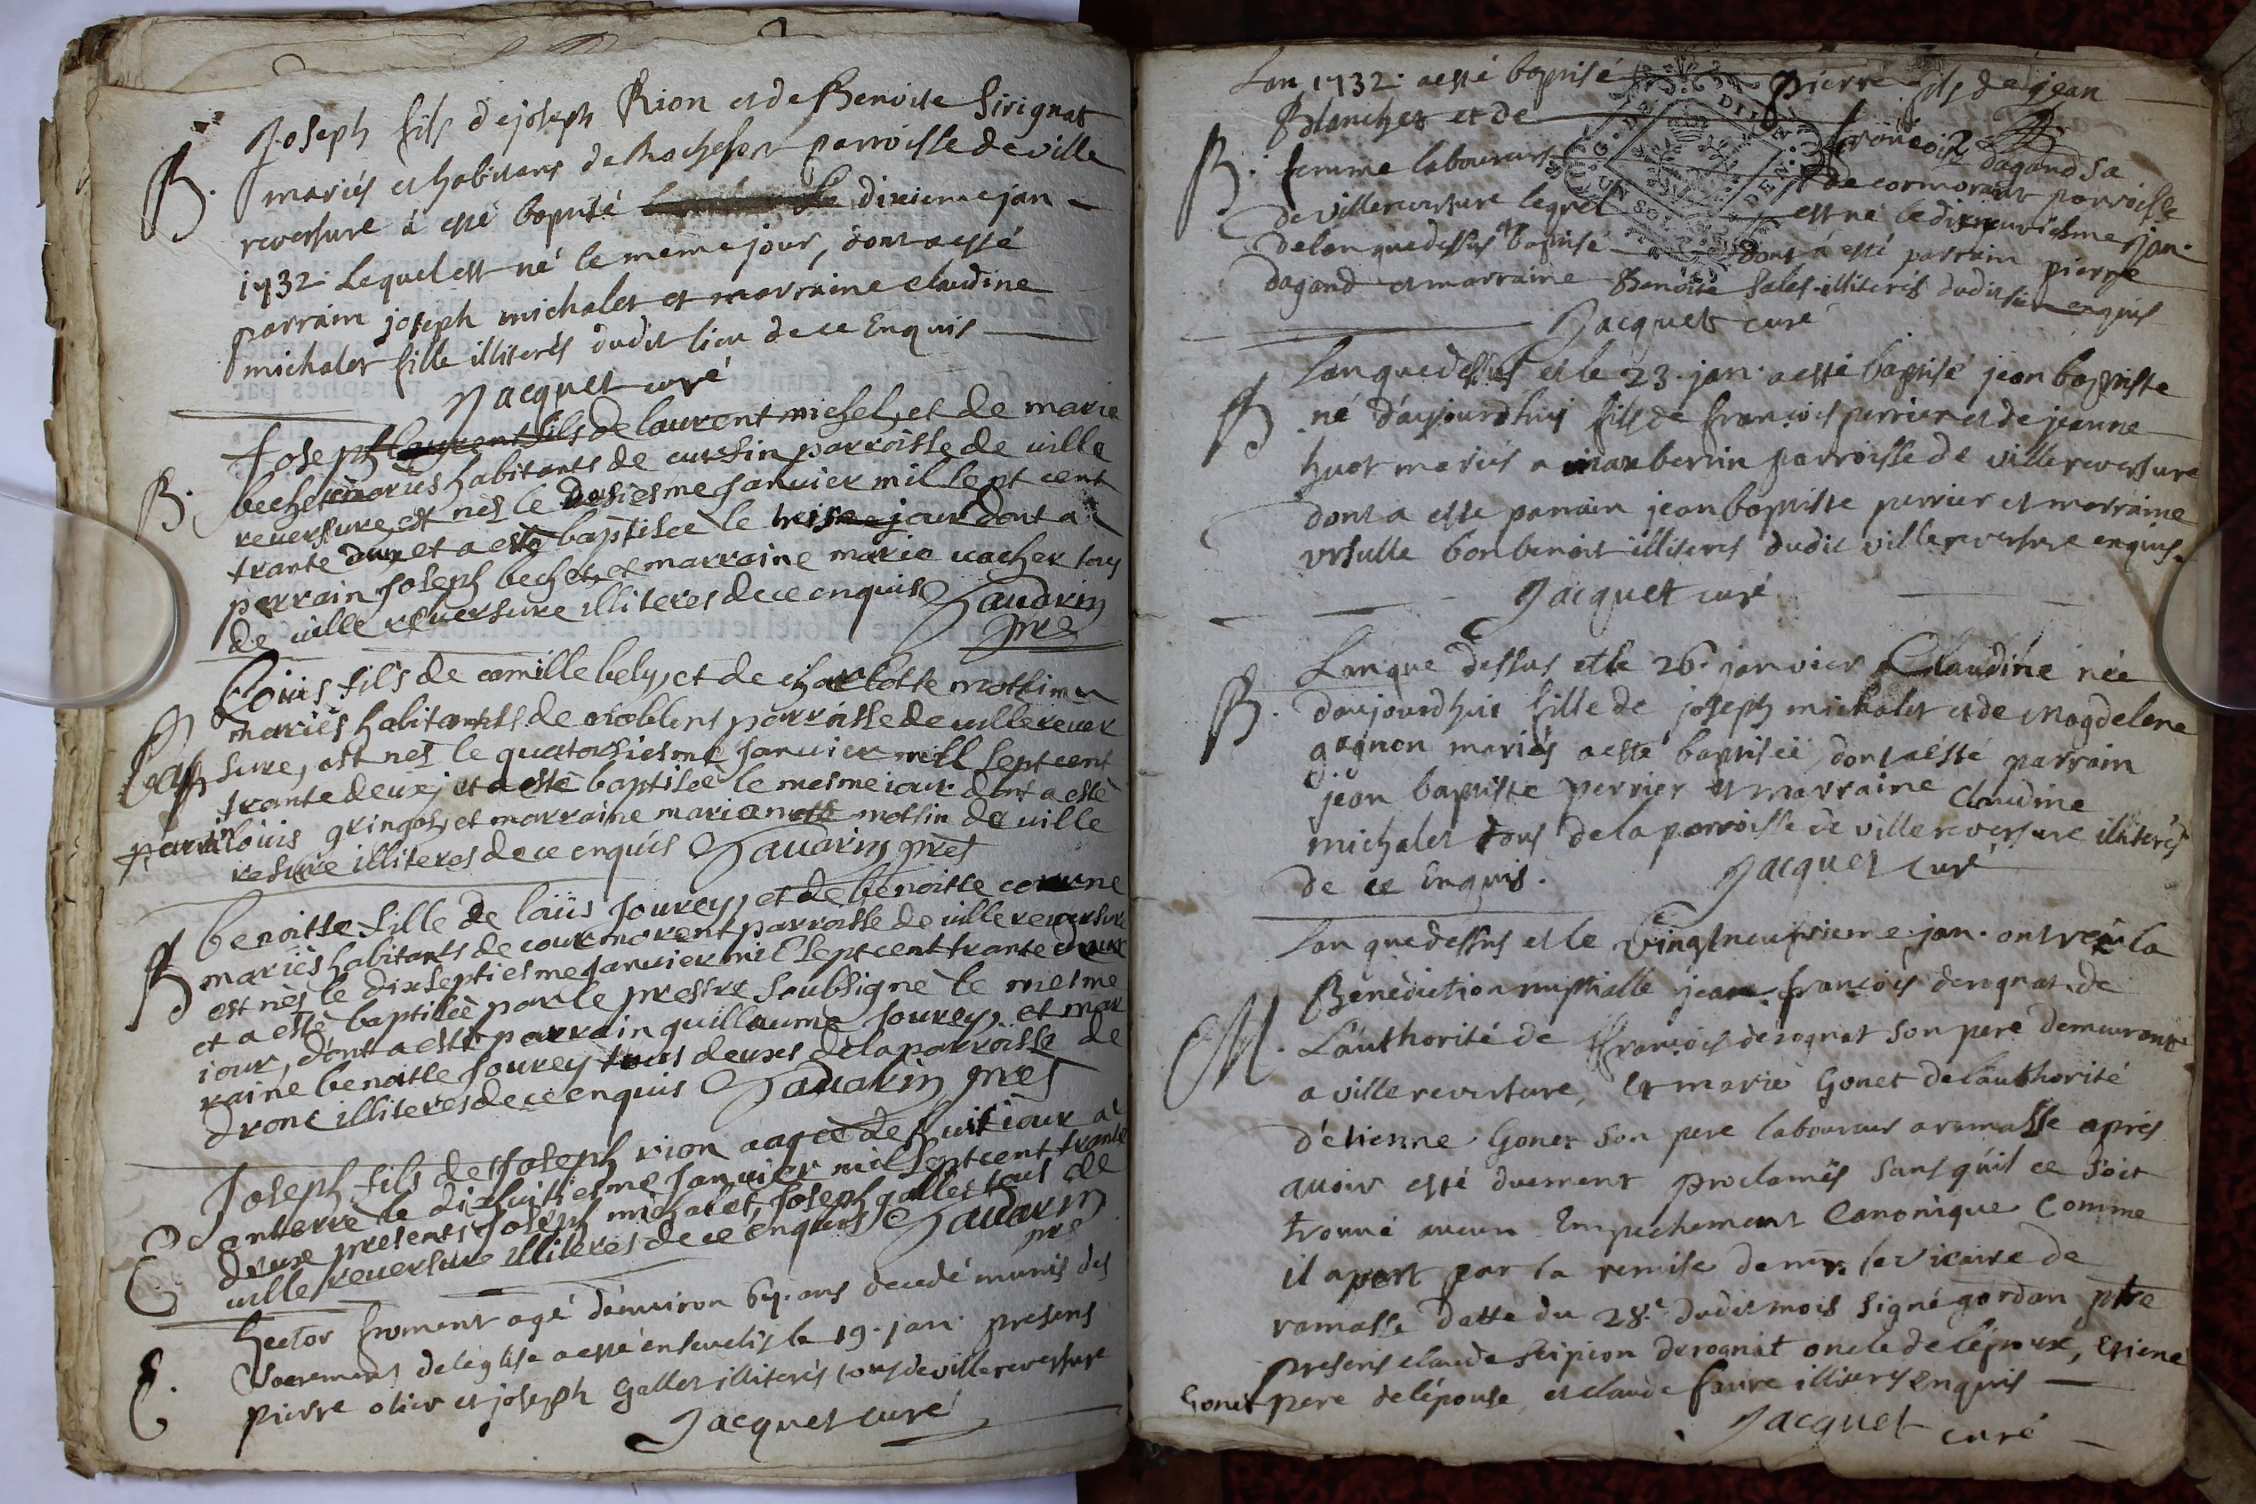 Joseph fils de joseph Rion et de Benoite Sirignat
B. mariés et habitans de Rochefort parroisse de ville
reversure à esté baptisé dixieme jan
1732. Lequel est né le meme jour, dont a esté
parrain joseph michalet et marraine claudine
michalet fille illiterés dudit lieu de ce Enquis
Jacquet curé
Joseph fils de laurent michel, et de marie
B. bechet mariès habitants de cursin parroisse de ville
reversure est nes le dosiesme Janvier mil sept cent
trante deux et a esté baptisèe le jour dont a
parrain Joseph bechet, et marraine marie vacher tous
de ville reversure illiteres de ce enquis Tavarin
pre
Loüis fils de camille bely, et de charlotte mottin
mariès habitants de noblens parroisse de ville rever
Bap sure, est nes le quatorsiesme Janvier mill sept cent
trante deux, et a esté baptisèe le mesme iour dont a estè
parain loüis gringos, et marraine marianoth mottin de ville
resure illiteres de ce enquis Tavarin pres
benoitte fille de loüis Jourey, et de benoitte
B mariès habitants de courmorent parroisse de ville reversure
est nès le dixseptiesme Janvier mil sept cent trante deux
et a estè baptisèe par le prestre soubsignè le mesme
iour, dont a estè parrain guillaume Jourey, et mar
raine benoitte Jourey tous deuxs de la parroisse de
dront illiteres de ce enquis Tavarin pres
Joseph fils de Joseph rion aagèe de huit iour a
E anterrè le dixhuitiesme Janvier mil sept cent trante
deuxe presents Joseph michalet, Joseph gallet tous de
ville reversure illiteres de ce enquis Tavarin
pre
hector froment agé d'environ 67. ans decedé munis des
E. Sacrements de l'eglise a esté enseveli le 19. jan. presens
pierre olier et joseph Gallet illiterés tous de villereversure
Jacquet curé
Lan 1732. a esté baptisé pierre fils de jean
Blanchet et de françoise dagand sa
B. femme laboureurs de cormorant parroisse
de villereversure lequel est né le dixneuvieme jan.
de lan que dessus et baptisé dont a esté parrain pierre
dagand et marraine Benoite Sales illiterés dudit lieu enquis
Jacquet curé
Lan que dessus et le 23. jan. a esté baptisé jean baptiste
B né d'aujourdhuy fils de françois perrier et de jeanne
huot mariés a parroisse de villereversure
dont a esté parrain jean baptiste perrier et marraine
ursulle bonbenoit illiteres dudit villereversure enquis.
Jacquet curé
Lan que dessus et le 26. janvier Claudine née
B. daujourdhui fille de joseph michalet et de Magdelene
gagnon mariés a esté baptiseé, dont a ésté parrain
jean baptiste perrier et marraine claudine
michalet tous de la parroisse de villereversure illiterés
de ce Enquis. Jacquet curé
Lan que dessus et le vingtneufvieme jan. ont reçu la
Benediction nuptialle jean françois derognat de
M. L'authorité de françois derognat son pere demeurant
a villereversure, et marie Gonet de l'authorité
d'etienne Gonet son pere laboureur a ramasse apres
avoir esté duement proclamés sans qu'il ce soit
trouvé aucun Empechement Canonique Comme
il apert par la remise de mr. le vicaire de
ramasse datte du 28.e dudit mois signé gordan ptre
presens claude scipion derognat oncle de l'époux, Etiene
Gonet pere de l'épouse, et claude favre illiterés enquis
Jacquet curé